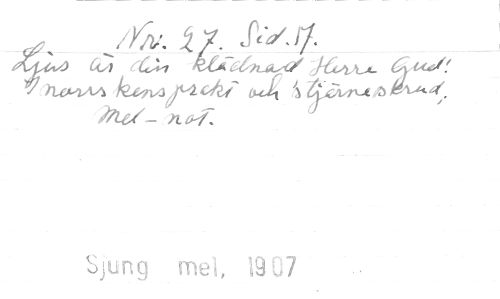 Nr. 27. Sid. 57.
Ljus är din klädnad Herre Gud!
I norrskensprakt och stjärneskrud,
Mel-not.
Sjung mel, 1907